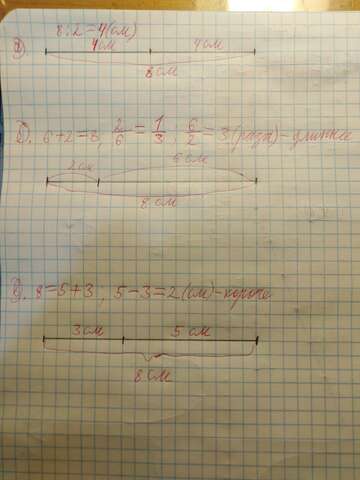 8:2=4(см)
а) 4см 4см
8см
б). 6+2=8, 2/6 = 1/3 ; 6/2 = 3(раза)-длиннее
2см 6см
8см
в). 8=5+3; 5-3=2(см)-короче
3см 5см
8см